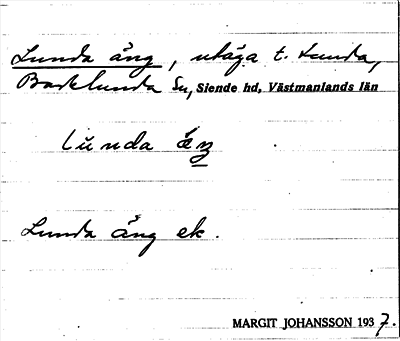 Lunda äng, utäga t. Lunda,
Badelunda sn, Siende hd, Västmanlands län
lŭnda äŋ
Lunda äng ek.
MARGIT JOHANSSON 1937.